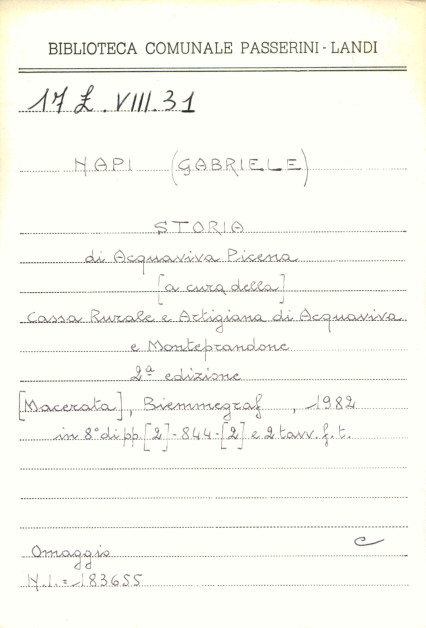 BIBLIOTECA COMUNALE PASSERINI-LANDI
17 Ł.VIII.31
NAPI (GABRIELE)
STORIA
di Acquaviva Picena
[a cura della]
Cassa Rurale e Artigiana di Acquaviva
e Monteprandone
2ª edizione
[Macerata], Biemmegraf, 1982
in 8° di pp. [2]-844-[2] e 2 tavv. f. t.
c
Omaggio
N.I. = 183655